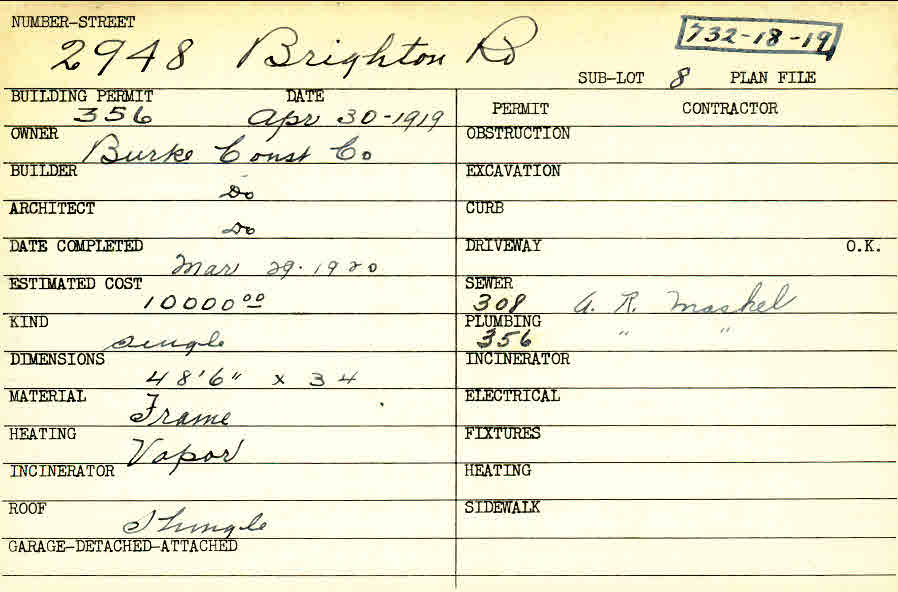 NUMBER-STREET
2948 Brighton Rd
732-18-19
SUB-LOT 8 PLAN FILE
BUILDING PERMIT DATE
356 Apr 30-1919
OWNER
Burke Const Co
BUILDER
Do
ARCHITECT
Do
DATE COMPLETED
Mar 29.1920
ESTIMATED COST
10000 00
KIND
Single
DIMENSIONS
48'6" x 34
MATERIAL
Frame
HEATING
Vapor
INCINERATOR
ROOF
Shingle
GARAGE-DETACHED-ATTACHED
PERMIT CONTRACTOR
OBSTRUCTION
EXCAVATION
CURB
DRIVEWAY O.K.
SEWER
308 A. R. Maskel
PLUMBING
356 " "
INCINERATOR
ELECTRICAL
FIXTURES
HEATING
SIDEWALK